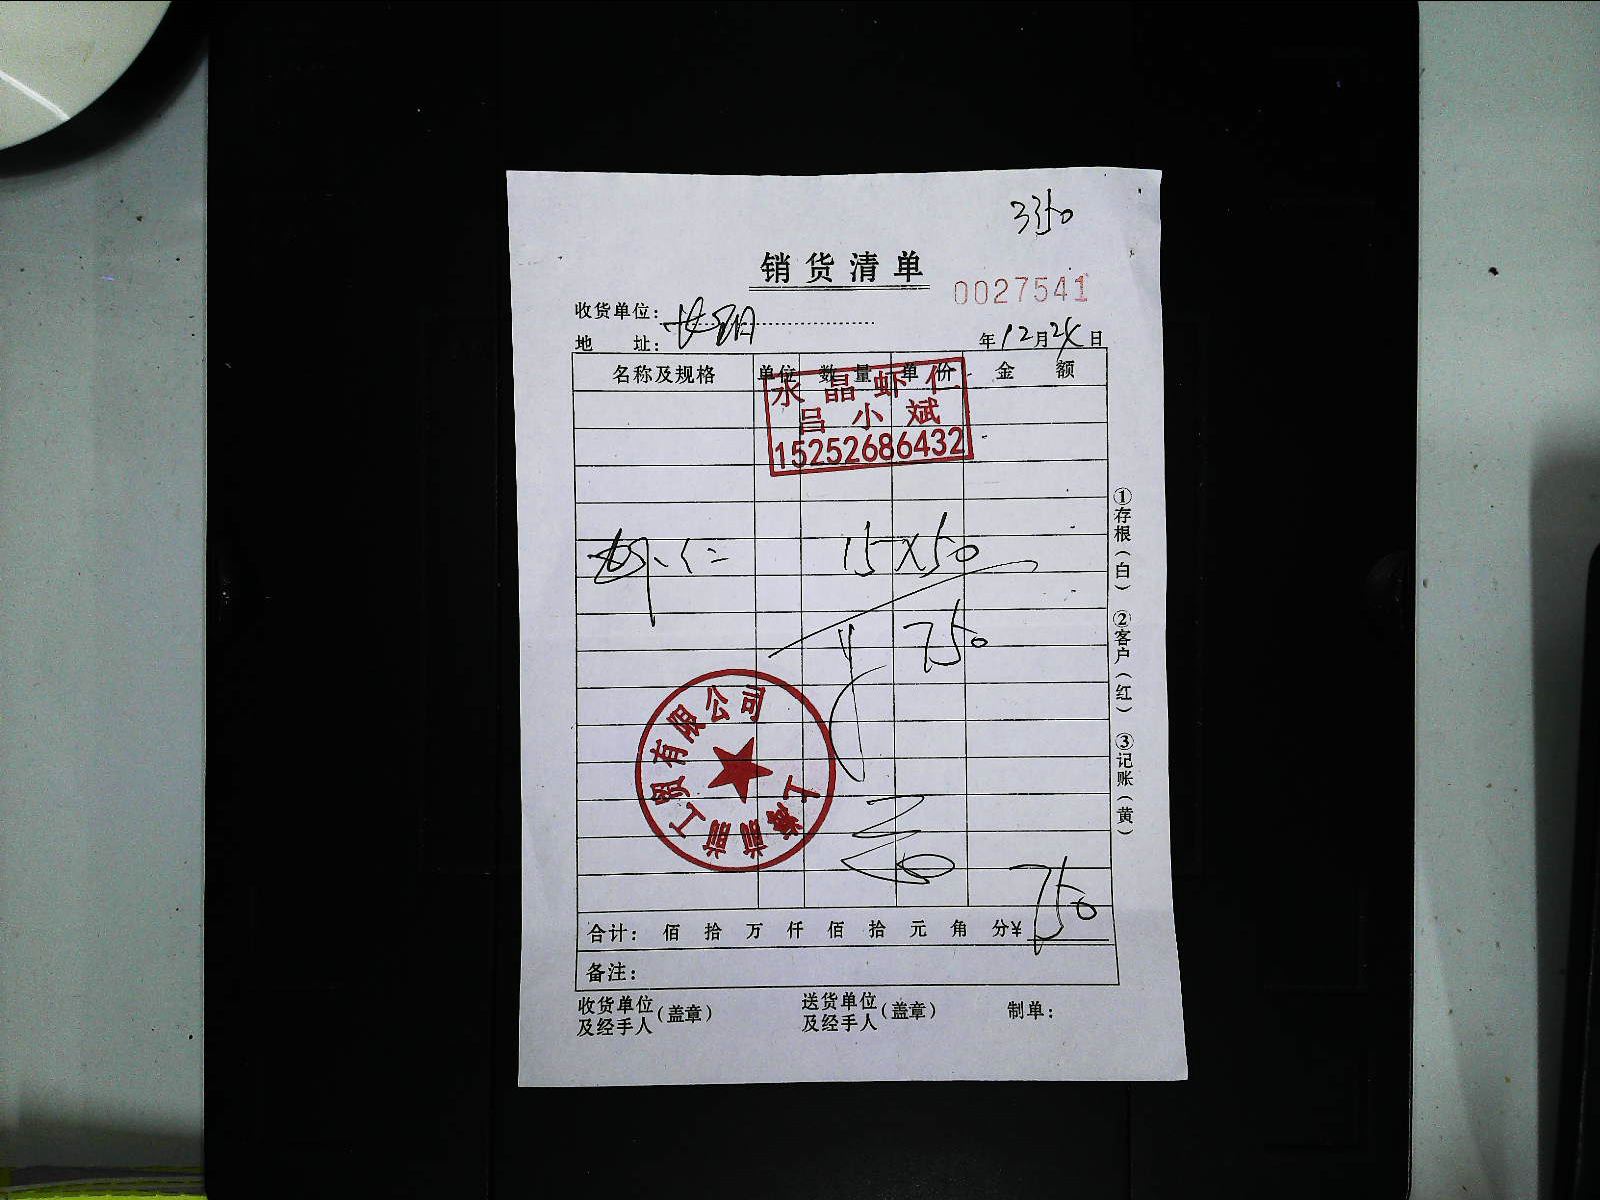 3350
销货清单
0027541
收货单位：
地 址： 年12月24日
名称及规格 单位 数量 单价 金额
水晶虾仁
吕小斌
15252686432
虾仁 15×50
750
上海前前工贸有限公司
合计： 佰 拾 万 仟 佰 拾 元 角 分¥ 750
备注：
收货单位及经手人（盖章） 送货单位及经手人（盖章） 制单：
①存根（白） ②客户（红） ③记账（黄）